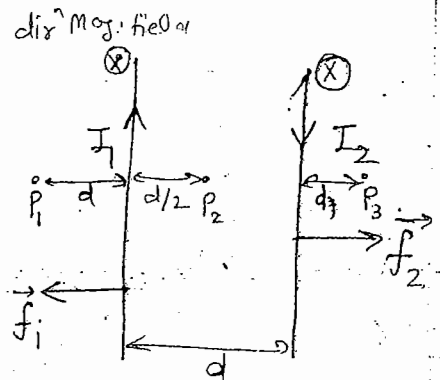 dirⁿ Mag. field
X
X
I₁
I₂
P₁
d
d/2
P₂
P₃
f₁
f₂
d